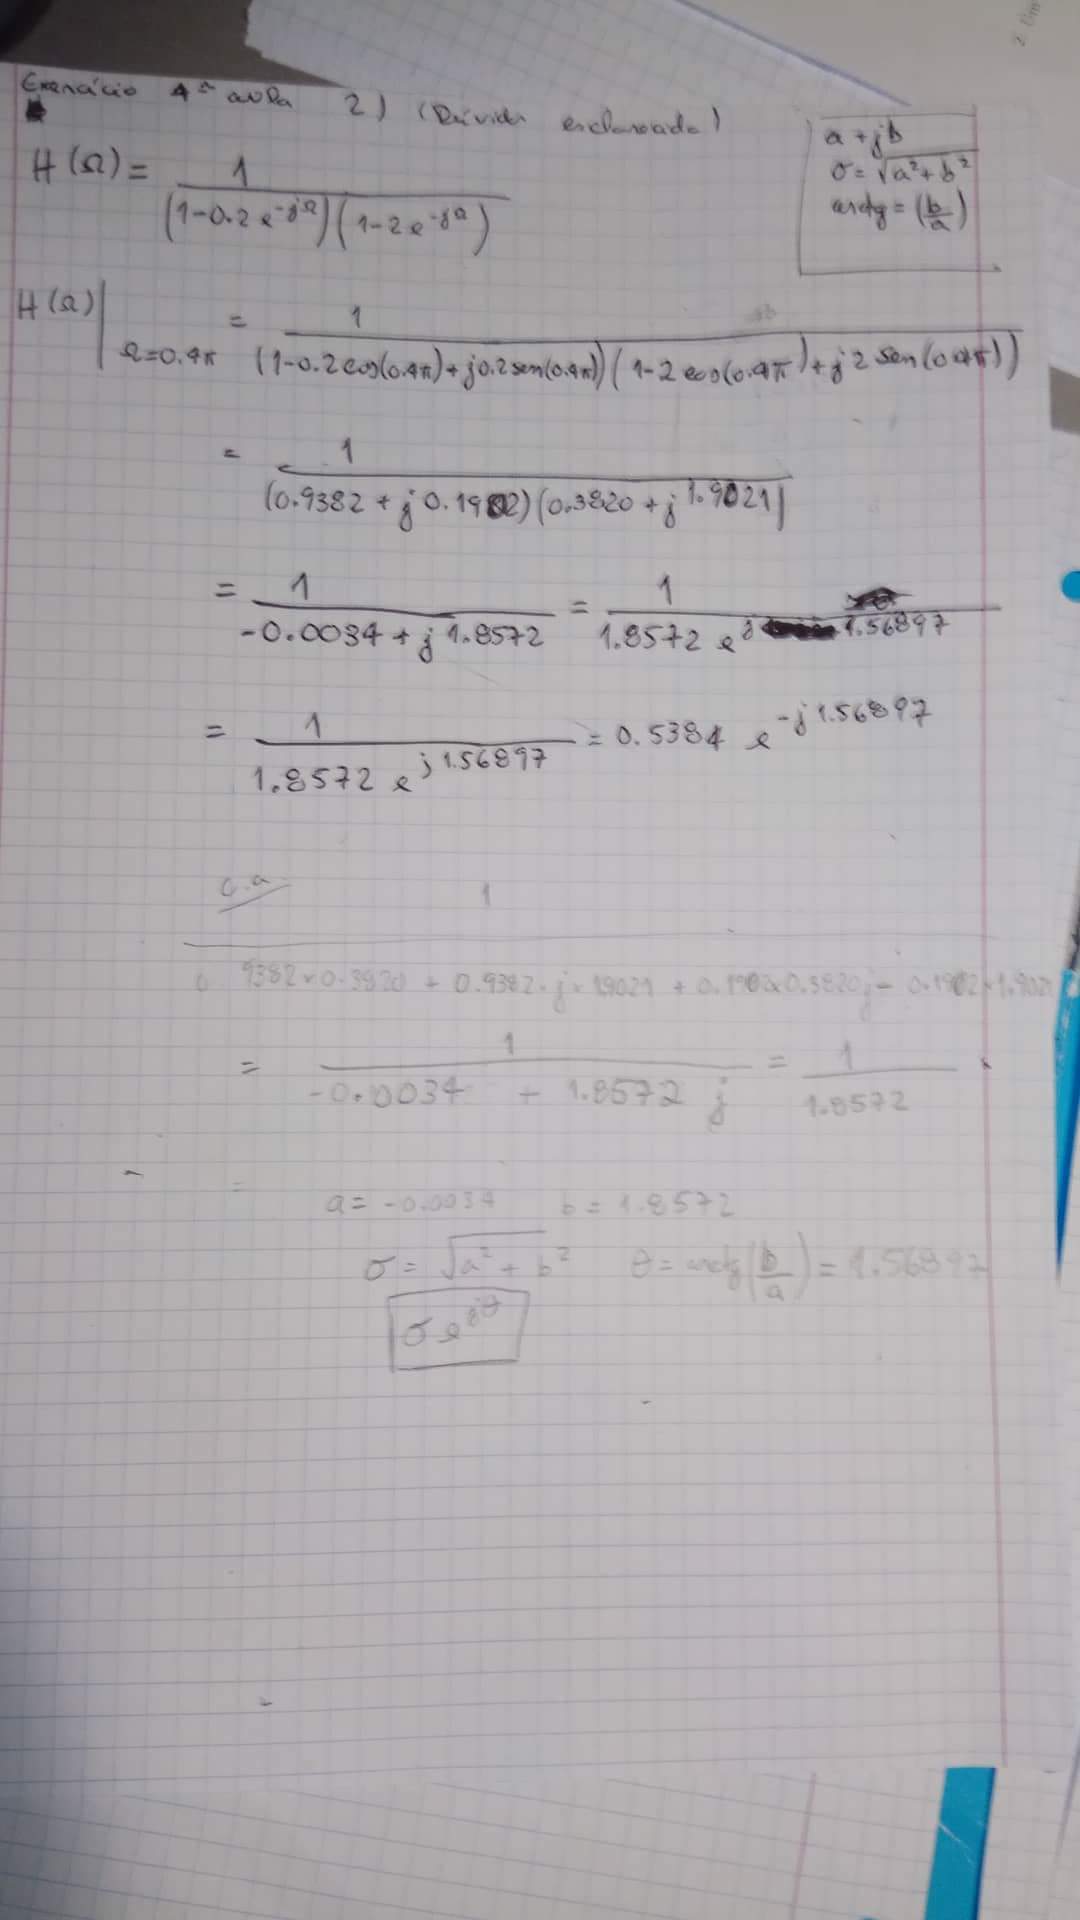 Exercício 4ª aula 2) (Dúvida esclarecida)
a + jb
σ = √(a² + b²)
arctg = (b/a)
H(Ω) = 1 / ((1-0.2 e^(-jΩ)) (1-2 e^(-jΩ)))
H(Ω)|Ω=0.4π = 1 / ((1-0.2 cos(0.4π) + j0.2 sen(0.4π)) (1-2 cos(0.4π) + j2 sen(0.4π)))
= 1 / ((0.9382 + j 0.1902) (0.3820 + j 1.9021))
= 1 / (-0.0034 + j 1.8572) = 1 / (1.8572 e^(j 1.56897))
= 1 / (1.8572 e^(j1.56897)) = 0.5384 e^(-j1.56897)
c.a
1 / (0.9382 × 0.3820 + 0.9382 · j × 1.9021 + 0.1902 × 0.3820 j - 0.1902 × 1.9021)
= 1 / (-0.0034 + 1.8572 j) = 1 / 1.8572
=
a = -0.0034 b = 1.8572
σ = √(a² + b²) θ = arctg(b/a) = 1.56897
σ e^(jθ)